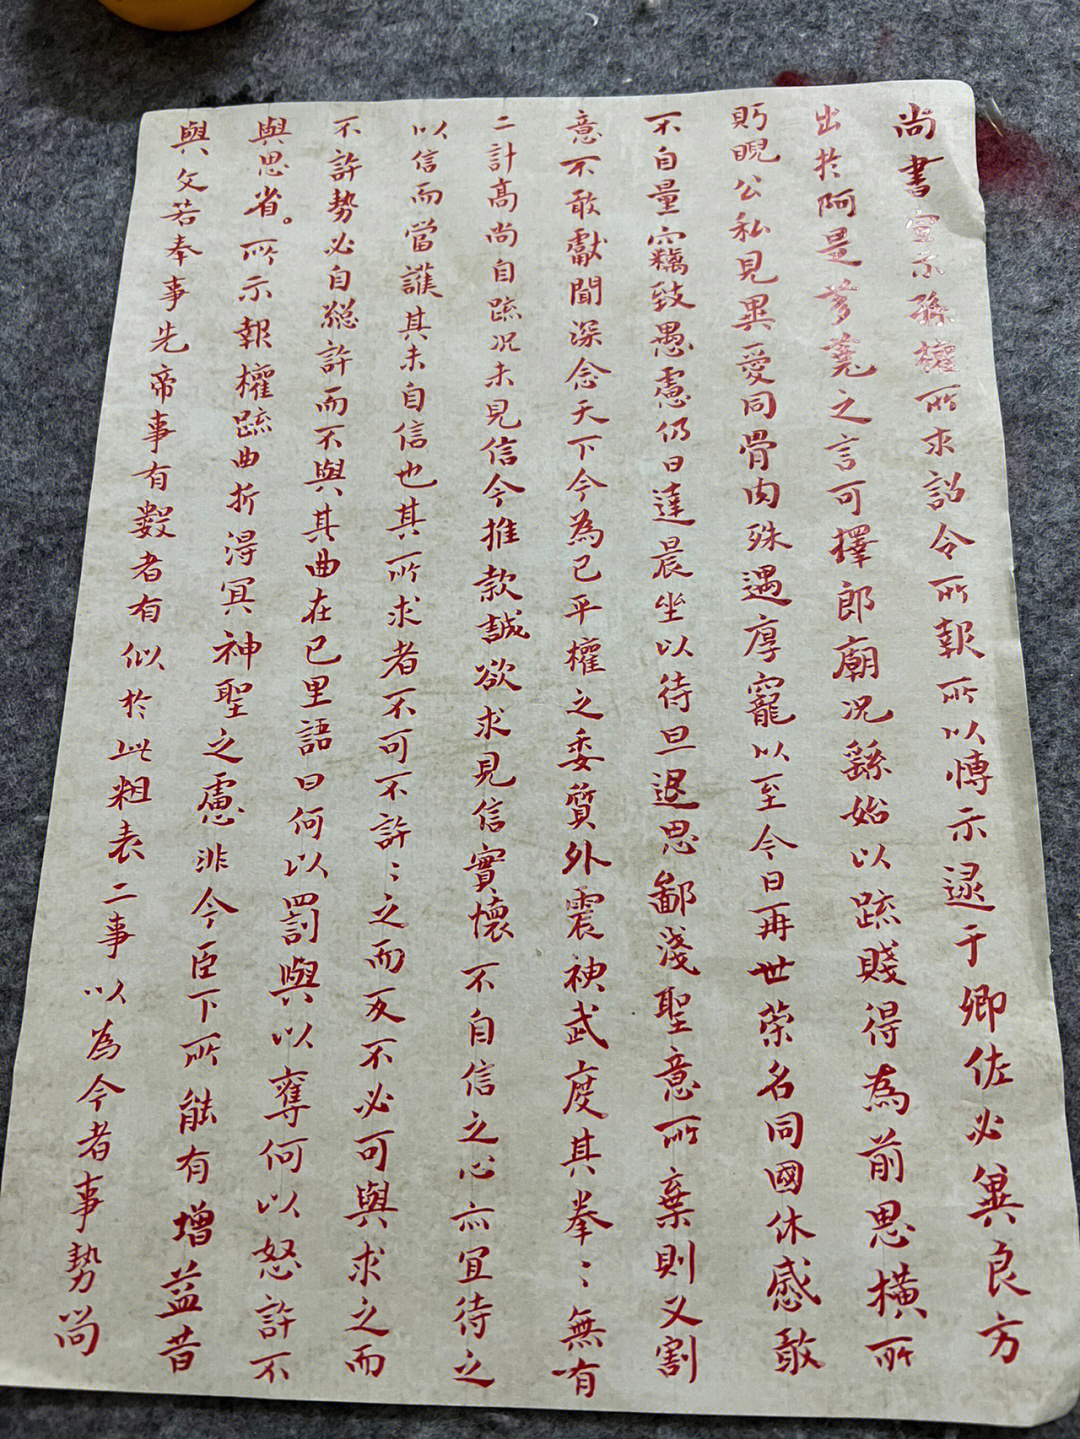 尚書宣示孫權所求詔令所報所以博示逮于卿佐必冀良方
出於阿是芻蕘之言可擇郎廟況繇始以疏賤得為前恩橫所
眄睨公私見異愛同骨肉殊遇厚寵以至今日再世榮名同國休慼敢
不自量竊致愚慮仍日達晨坐以待旦退思鄙淺聖意所棄則又割
意不敢獻聞深念天下今為已平權之委質外震神武度其拳〻無有
二計高尚自疏況未見信今推款誠欲求見信實懷不自信之心亦宜待之
以信而當護其未自信也其所求者不可不許〻之而反不必可與求之而
不許勢必自絕許而不與其曲在己里語曰何以罰與以奪何以怒許不
與思省。所示報權疏曲折得冥神聖之慮非今臣下所能有增益昔
與文若奉事先帝事有數者有似於此粗表二事以為今者事勢尚